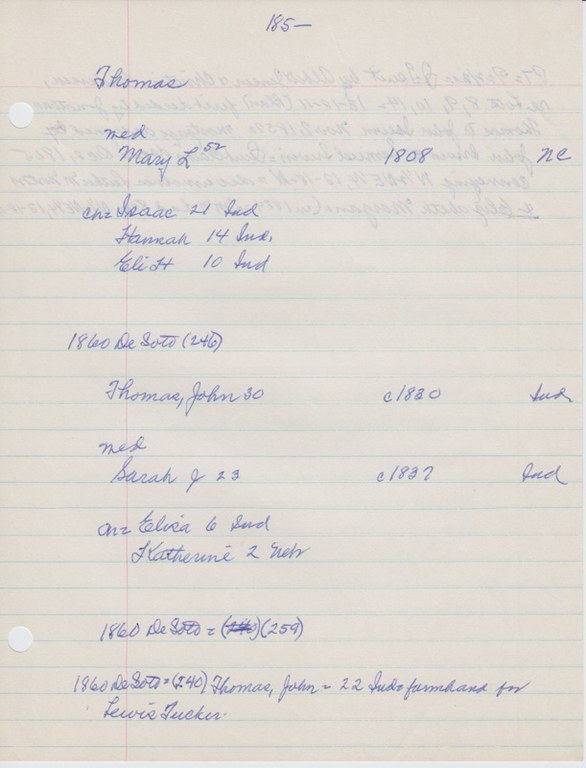 185—
Thomas
med
Mary L 52 1808 NC
ch= Isaac 21 Ind
Hannah 14 Ind.
Eli H 10 Ind
1860 De Soto (246)
Thomas, John 30 c1830 Ind
med
Sarah J 23 c1837 Ind
ch= Eliza 6 Ind
Katherine 2 Neb
1860 De Soto = (240) (259)
1860 De Soto = (240) Thomas, John = 22 Ind= farmhand for
Lewis Tucker.